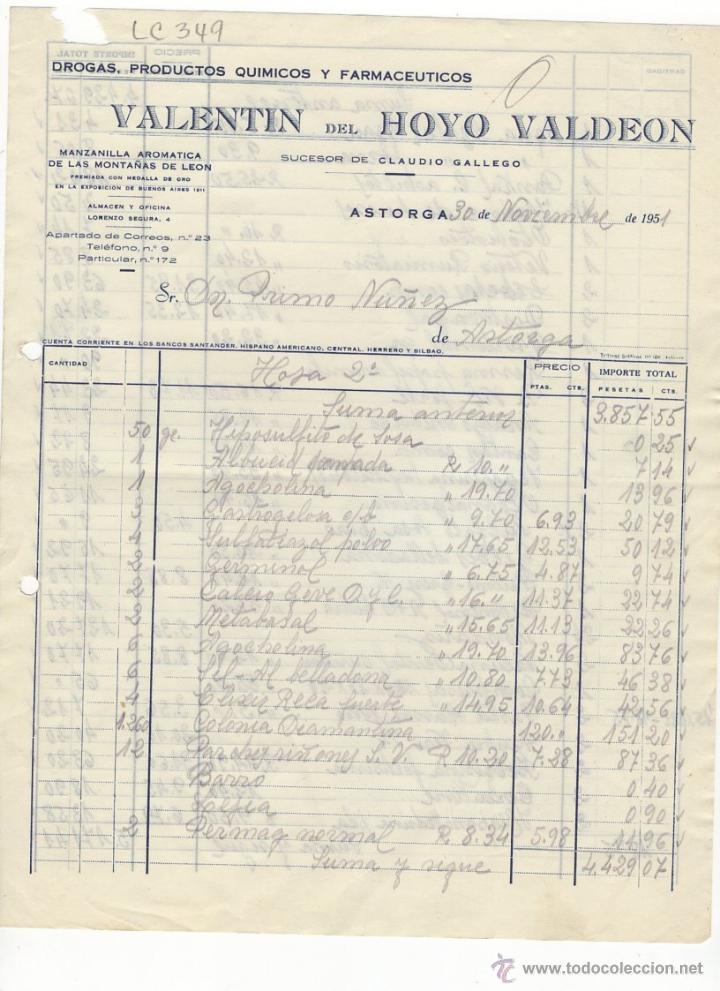 LC 349
DROGAS, PRODUCTOS QUIMICOS Y FARMACEUTICOS
VALENTIN DEL HOYO VALDEON
MANZANILLA AROMATICA
DE LAS MONTAÑAS DE LEON
SUCESOR DE CLAUDIO GALLEGO
PREMIADA CON MEDALLA DE ORO
EN LA EXPOSICION DE BUENOS AIRES 1911
ALMACEN Y OFICINA
LORENZO SEGURA, 4
ASTORGA 30 de Noviembre de 1951
Apartado de Correos, n.º 23
Teléfono, n.º 9
Particular, n.º 172
Sr. Dn. Primo Nuñez
de Astorga
CUENTA CORRIENTE EN LOS BANCOS SANTANDER, HISPANO AMERICANO, CENTRAL, HERRERO Y BILBAO.
CANTIDAD Hoja 2ª PRECIO IMPORTE TOTAL
PTAS. CTS. PESETAS CTS.
Suma anterior 3.857 55
50 gr. Hiposulfito de sosa 0 25
1 Albucid pomada R 10." 7 14
1 Agocholina " 19.70 13 96
3 " 9.70 6.93 20 79
4 polvo " 17.65 12.53 50 12
2 Germinol " 6.75 4.87 9 74
2 Calcio Geve D. y C. " 16." 11.37 22 74
2 Metabasal " 15.65 11.13 22 26
6 Agocholina " 19.70 13.96 83 76
6 Sil-Al belladona " 10.80 7.73 46 38
4 Elixir Reca fuerte " 14.95 10.64 42 56
1.260 Colonia Diamantina 120." 151 20
12 Parches riñones S. V. R 10.20 7.28 87 36
Barro 0 40
0 90
2 Permag normal R. 8.34 5.98 11 96
Suma y sigue 4.429 07
www.todocoleccion.net